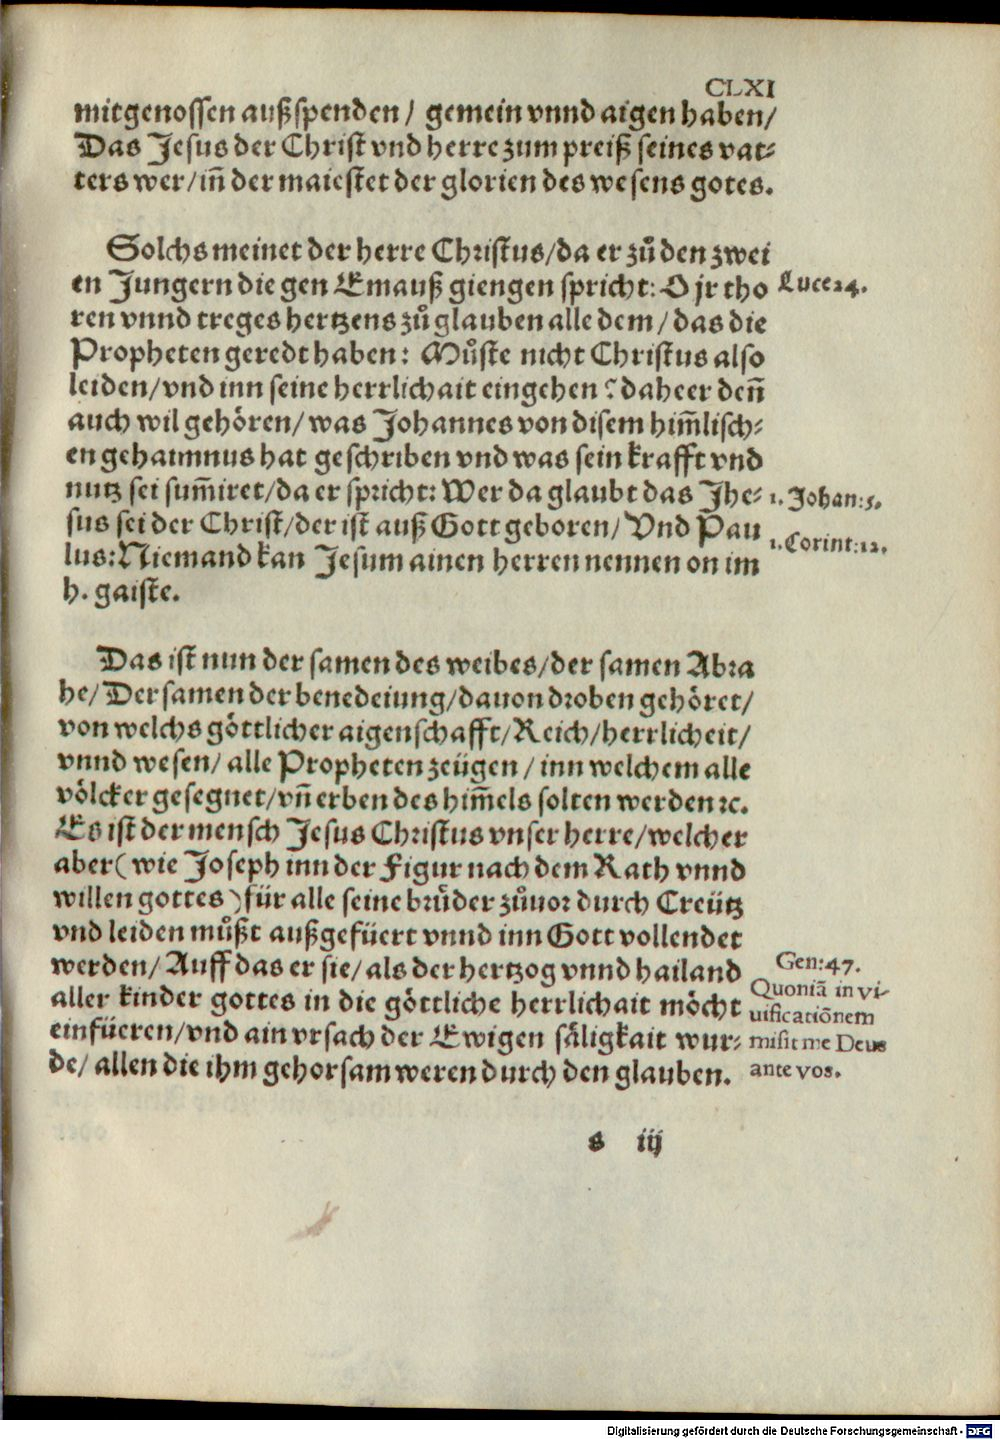 CLXI
mitgenossen außspenden / gemein vnnd aigen haben/
Das Jesus der Christ vnd herre zum preiß seines vat⸗
ters wer/iñ der maiestet der glorien des wesens gotes.
Solchs meinet der herre Christus/da er zů den zwei
en Jungern die gen Emauß giengen spricht: O jr tho
ren vnnd treges hertzens zů glauben alle dem / das die
Propheten geredt haben: Můste nicht Christus also
leiden/vnd inn seine herrlichait eingehen? daheer deñ
auch wil gehören/ was Johannes von disem him̃lisch⸗
en gehaimnus hat geschriben vnd was sein krafft vnd
nutz sei sum̃iret/da er spricht: Wer da glaubt das Jhe⸗
sus sei der Christ/der ist auß Gott geboren/ Vnd Pau
lus: Niemand kan Jesum ainen herren nennen on im
h. gaiste.
Luce 24.
1. Johan: 5.
1. Corint: 12.
Das ist nun der samen des weibes/der samen Abra
he/ Der samen der benedeiung/dauon droben gehöret/
von welchs göttlicher aigenschafft/Reich/herrlicheit/
vnnd wesen/ alle Propheten zeügen / inn welchem alle
völcker gesegnet/vñ erben des him̃els solten werden ꝛc.
Es ist der mensch Jesus Christus vnser herre/welcher
aber( wie Joseph inn der Figur nach dem Rath vnnd
willen gottes ) für alle seine brůder zůuor durch Creütz
vnd leiden můßt außgefüert vnnd inn Gott vollendet
werden/ Auff das er sie/als der hertzog vnnd hailand
aller kinder gottes in die göttliche herrlichait möcht
einfüeren/vnd ain vrsach der Ewigen säligkait wur⸗
de/ allen die ihm gehorsam weren durch den glauben.
Gen: 47.
Quoniã in vi-
uificatiõnem
misit me Deus
ante vos.
s iij
Digitalisierung gefördert durch die Deutsche Forschungsgemeinschaft - DFG